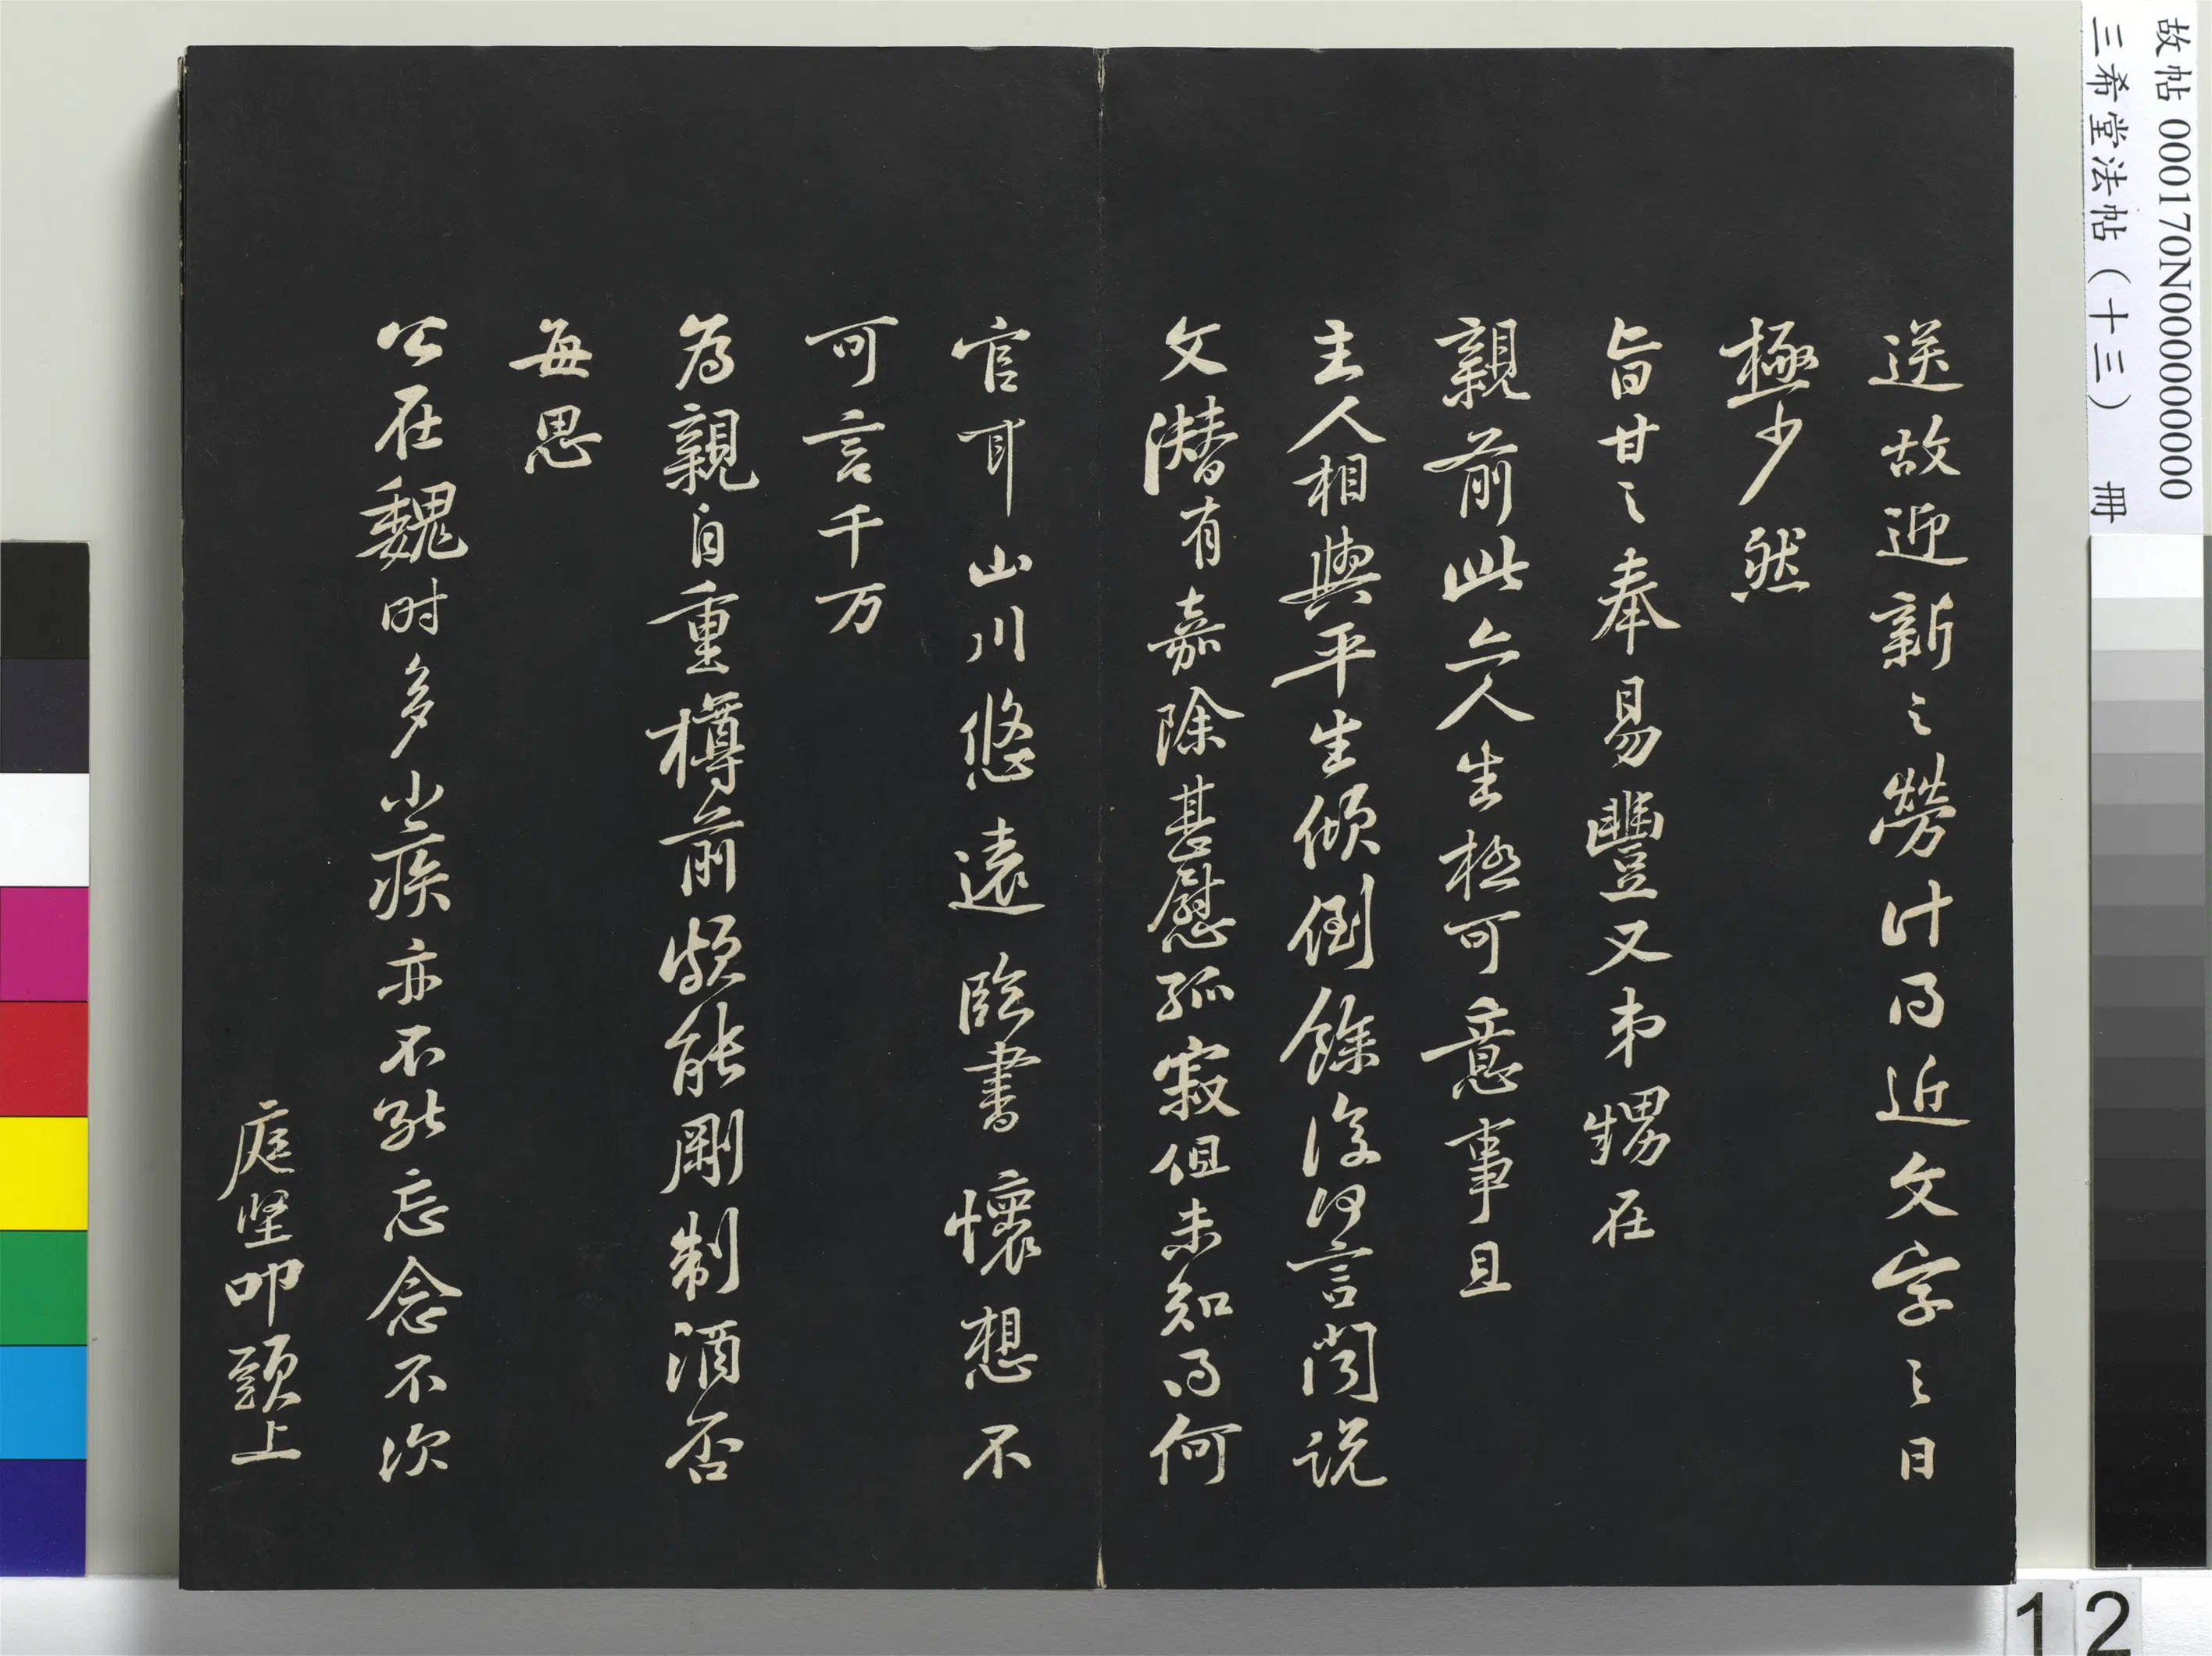 故帖 000170N000000000
三希堂法帖（十三） 冊
送故迎新之勞計得近文字之日
極少然
旨甘之奉易豐又弟甥在
親前此亦人生極可意事且
主人相與平生傾倒餘復何言聞說
文潛有嘉除甚慰孤寂但未知得何
官耳山川悠遠臨書懷想不
可言千万
為親自重樽前頗能剛制酒否
每思
公在魏时多小疾亦不能忘念不次
庭堅叩頭上
12